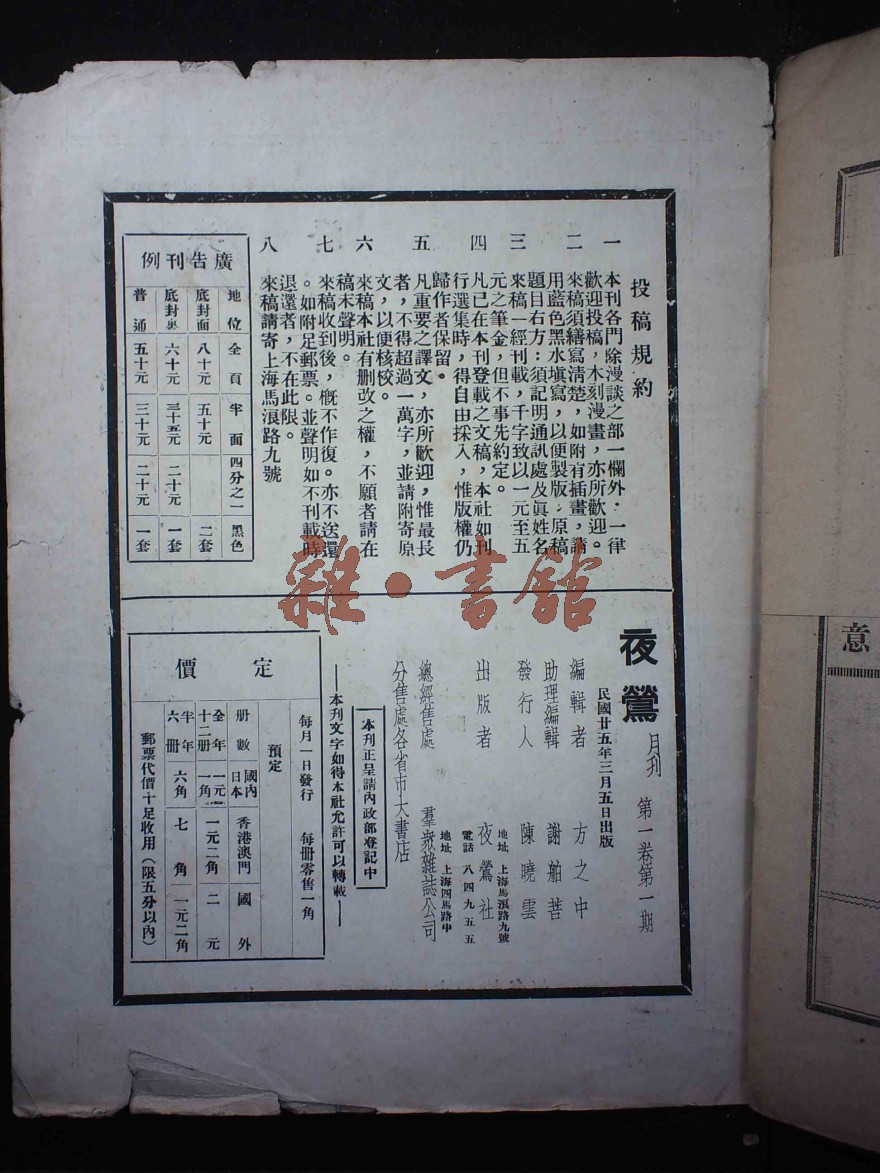 投稿規約
一 本刊各門除漫談之部一欄外,一律
歡迎投稿,木刻漫畫,亦所歡迎。
二 來稿須繕寫清楚,如附有插畫,請
用藍色黑水塡寫,以便製版,原稿
題目右方:須記明通訊處及眞姓名
三 來稿一經刊載,千字致以一元至五
元之筆金,但不事先約定。
四 凡已在本刊登載之文稿,本社如刊
行選集時,得自由採入,惟版權仍
歸作者保留。
五 凡重要之譯文,亦所歡迎,惟最長
者,不得超過一萬字,並請附寄原
文,以便核校。
六 來稿本社有刪改之權,不願者請在
稿末聲明。
七 來稿收到後,槪不作復。亦不送還
。如附足郵票。並聲明如不刊載時
退還者,不在此限。
八 來稿請寄上海馬浪路九號
廣告刊例
地位 全頁 半面 四分之一 黑色
底封面 八十元 五十元 二套
底封裏 六十元 三十五元 二十元 一套
普通 五十元 三十元 二十元 一套
雜·書館
夜鶯 月刊 第一卷第一期
民國廿五年三月五日出版
編輯者 方之中
助理編輯 謝舶苦
發行人 陳曉雲
地址 上海馬浪路九號
出版者 夜鶯社
電話 八四九五五
地址 上海四馬路中
總經售處 羣衆雜誌公司
分售處各省市大書店
本刊正呈請內政部登記中
——本刊文字如得本社允許可以轉載——
定價
每月一日發行 每冊零售一角
預定
册數 國內日本 香港澳門 國外
全年十二册 一元一角 一元二角 二元
半年六册 六角 七角 一元二角
郵票代價十足收用(限五分以內)
意